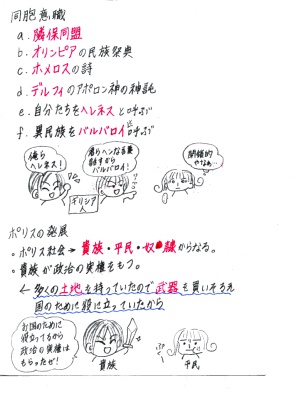 同胞意識
a. 隣保同盟
b. オリンピアの民族祭典
c. ホメロスの詩
d. デルフィのアポロン神の神託
e. 自分たちをヘレネスと呼ぶ
f. 異民族をバルバロイと呼ぶ
俺らヘレネス!
周りヘンな言葉話すからバルバロイ!
閉鎖的やなぁ…
ギリシア人
ポリスの発展
・ポリス社会→貴族・平民・奴隷からなる。
・貴族が政治の実権をもつ。
← 多くの土地を持っていたので武器も買いそろえ
国のために役に立っていたから
お国のために
役立ってるから
政治の実権は
もらったぜ!
貴族
平民